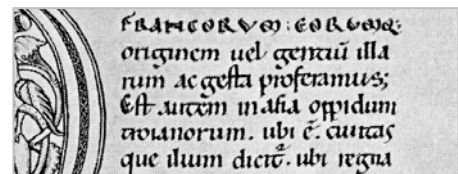 FRANCORVM : EORVMQ:
originem uel gentiū illa
rum ac gesta proferamus;
Est autem in asia oppidum
troianorum. ubi ē. ciuitas
que ilium dicit̄. ubi regna